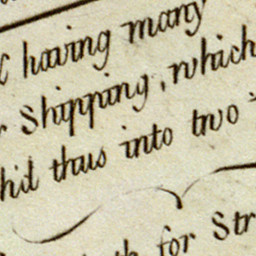 having many
Shipping, which
thus into two
for Str